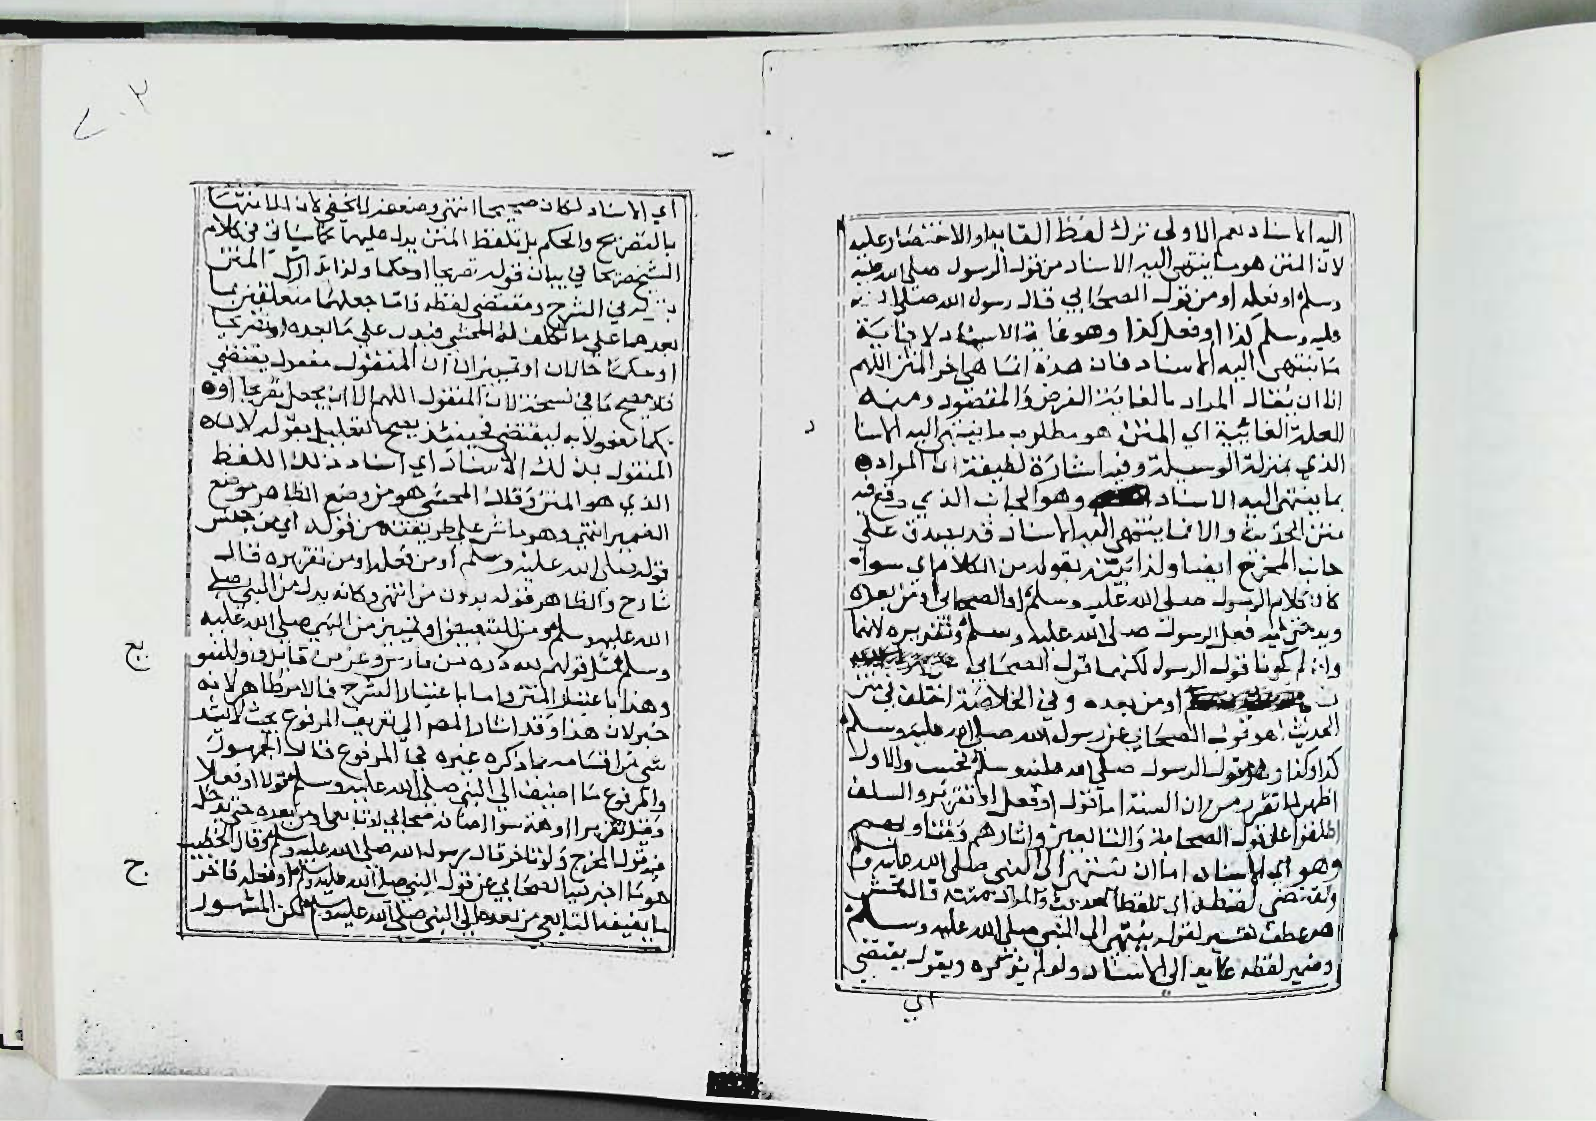 اليه الاسناد نعم الاولى ترك لفظ الغاية والاختصار عليه
لان المتن هو ما ينتهي اليه الاسناد من قول الرسول صلى الله عليه
وسلم او فعله او من قول الصحابي قال رسول الله صلى الله
عليه وسلم كذا او فعل كذا وهو غاية الاسناد لا غاية
ما ينتهي اليه الاسناد فان هذه انما هي اخر المتن اللهم
الا ان يقال المراد بالغاية الغرض والمقصود ومنه
العلة الغائية اي المتن هو مطلوب ما ينتهي اليه الاسنا
الذي بمنزلة الوسيلة وفيه اشارة لطيفة ان المراد
بما ينتهي اليه الاسناد وهو الجانب الذي وقع فيه
متن الحديث والا فما ينتهي اليه الاسناد قد يصدق على
جانب المخرج ايضا ولذا بينه بقوله من الكلام اي سواء
كان كلام الرسول صلى الله عليه وسلم او الصحابي او من بعده
ويدخل فيه فعل الرسول صلى الله عليه وسلم وتقريره لانهما
وان لم يكونا قول الرسول لكنهما قول الصحابي
او من بعده وفي الخلاصة اختلف في متن
الحديث اهو قول الصحابي عن رسول الله صلى الله عليه وسلم
كذا وكذا وهو مقول الرسول صلى الله عليه وسلم فحسب والاول
اظهر لما تقرر من ان السنة اما قول او فعل او تقرير والسلف
اطلقوا على قول الصحابة والتابعين واثارهم وفتاويهم
وهو اي الاسناد اما ان ينتهي الى النبي صلى الله عليه وسلم
ويقتضي لفظه اي تلفظ الحديث والمراد متنه قال محشي
هو عطف تفسير لقوله ينتهي الى النبي صلى الله عليه وسلم
وضمير لفظه عائد الى الاسناد ولو لم يذكره ويقول يقتضي
اي
٢٠٣
اي الاسناد لكان صحيحا انتهى وضعفه لا يخفى لان الانتها
بالتصريح والحكم بل تلفظ المتن يدل عليهما كما سياتي في كلام
الشيخ صريحا في بيان قوله تصريحا او حكما ولذا
في الشرح ومقتضى لفظه واما جعلهما متعلقين بما
بعدهما على ما تكلف له المحشي فيدل على ما بعده او تصريحا
او حكما حالان او تمييزان ان المنقول مفعول يقتضي
فلا يصح ما في نسخة لان المنقول اللهم الا ان يجعل تصريحا او
حكما مفعولا به ليقتضي فحينئذ يصح التعليل بقوله لان
المنقول بذلك الاسناد اي اسناد ذلك اللفظ
الذي هو المتن وقال المحشي هو من وضع الظاهر موضع
الضمير انتهى وهو ماش على طريقته من قوله اي من جنس
قوله صلى الله عليه وسلم او من فعله او من تقريره قال
شارح والظاهر قوله بدون من انتهى وكانه بدل من النبي صلى
الله عليه وسلم فمن للتبعيض او تبيين من النبي صلى الله عليه
وسلم مثل قولهم لله دره من فارس وعز من قائل
وهذا باعتبار المتن واما باعتبار الشرح فالامر ظاهر لانه
خبر لان هذا وقد اشار المصر الى تعريف المرفوع بحيث لا يشذ
شي من اقسامه مما ذكره غيره في المرفوع فقال الجمهور
والمرفوع ما اضيف الى النبي صلى الله عليه وسلم قولا او فعلا
وقيل تقريرا او همة سوا اضافه صحابي او تابعي او من بعده حتى يدخل
فيه قول المخرج ولو تاخر قال رسول الله صلى الله عليه وسلم وقال الخطيب
هو ما اخبر فيه الصحابي عن قول النبي صلى الله عليه وسلم او فعله فاخرج
ما يضيفه التابعي من بعده الى النبي صلى الله عليه وسلم لكن المشهور